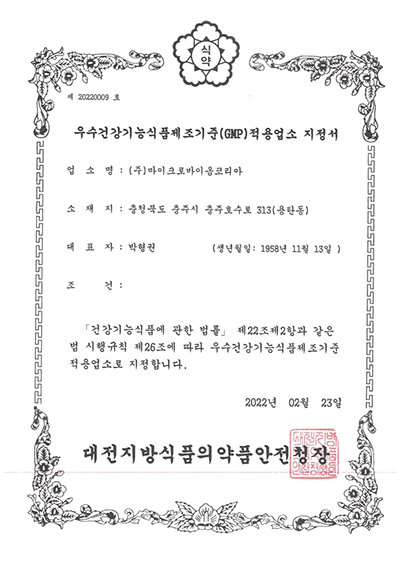 식약
제 20220009 호
우수건강기능식품제조기준(GMP)적용업소 지정서
업 소 명 : (주)마이크로바이옴코리아
소 재 지 : 충청북도 충주시 충주호수로 313(용탄동)
대 표 자 : 박형권 (생년월일: 1958년 11월 13일 )
조 건 :
「건강기능식품에 관한 법률」 제22조제2항과 같은
법 시행규칙 제26조에 따라 우수건강기능식품제조기준
적용업소로 지정합니다.
2022년 02월 23일
대전지방식품의약품안전청장